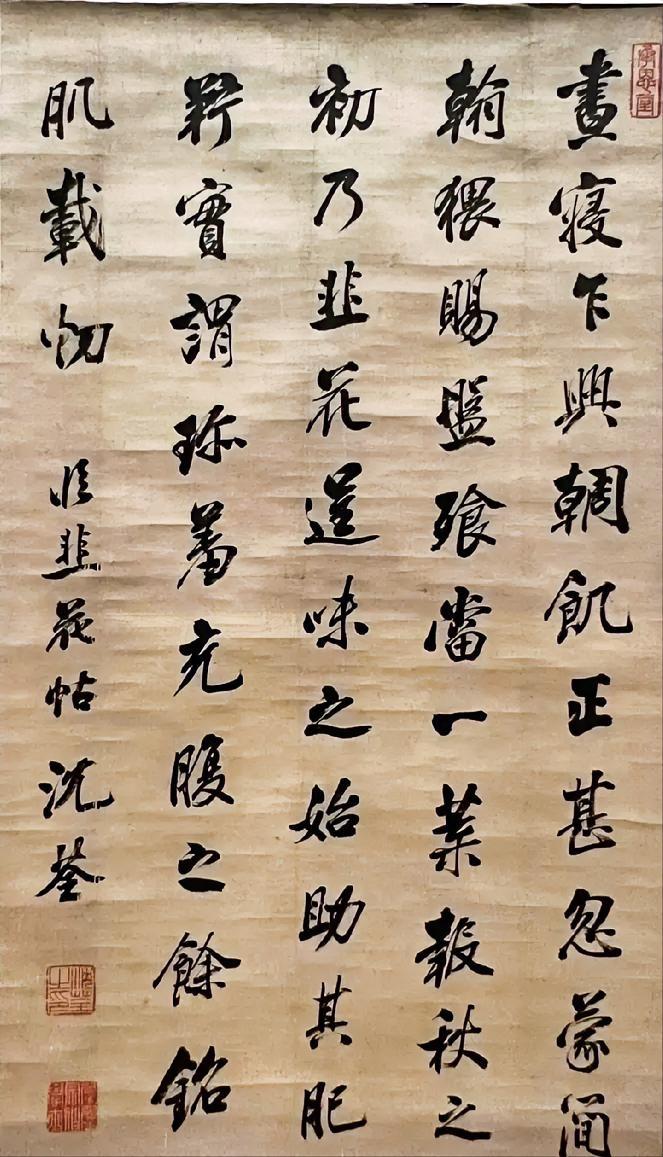 晝寢乍興輖飢正甚忽蒙簡
翰猥賜盤飧當一葉報秋之
初乃韭花逞味之始助其肥
羜實謂珍羞充腹之餘銘
肌載切 臨韭花帖 沈荃
沈荃之印